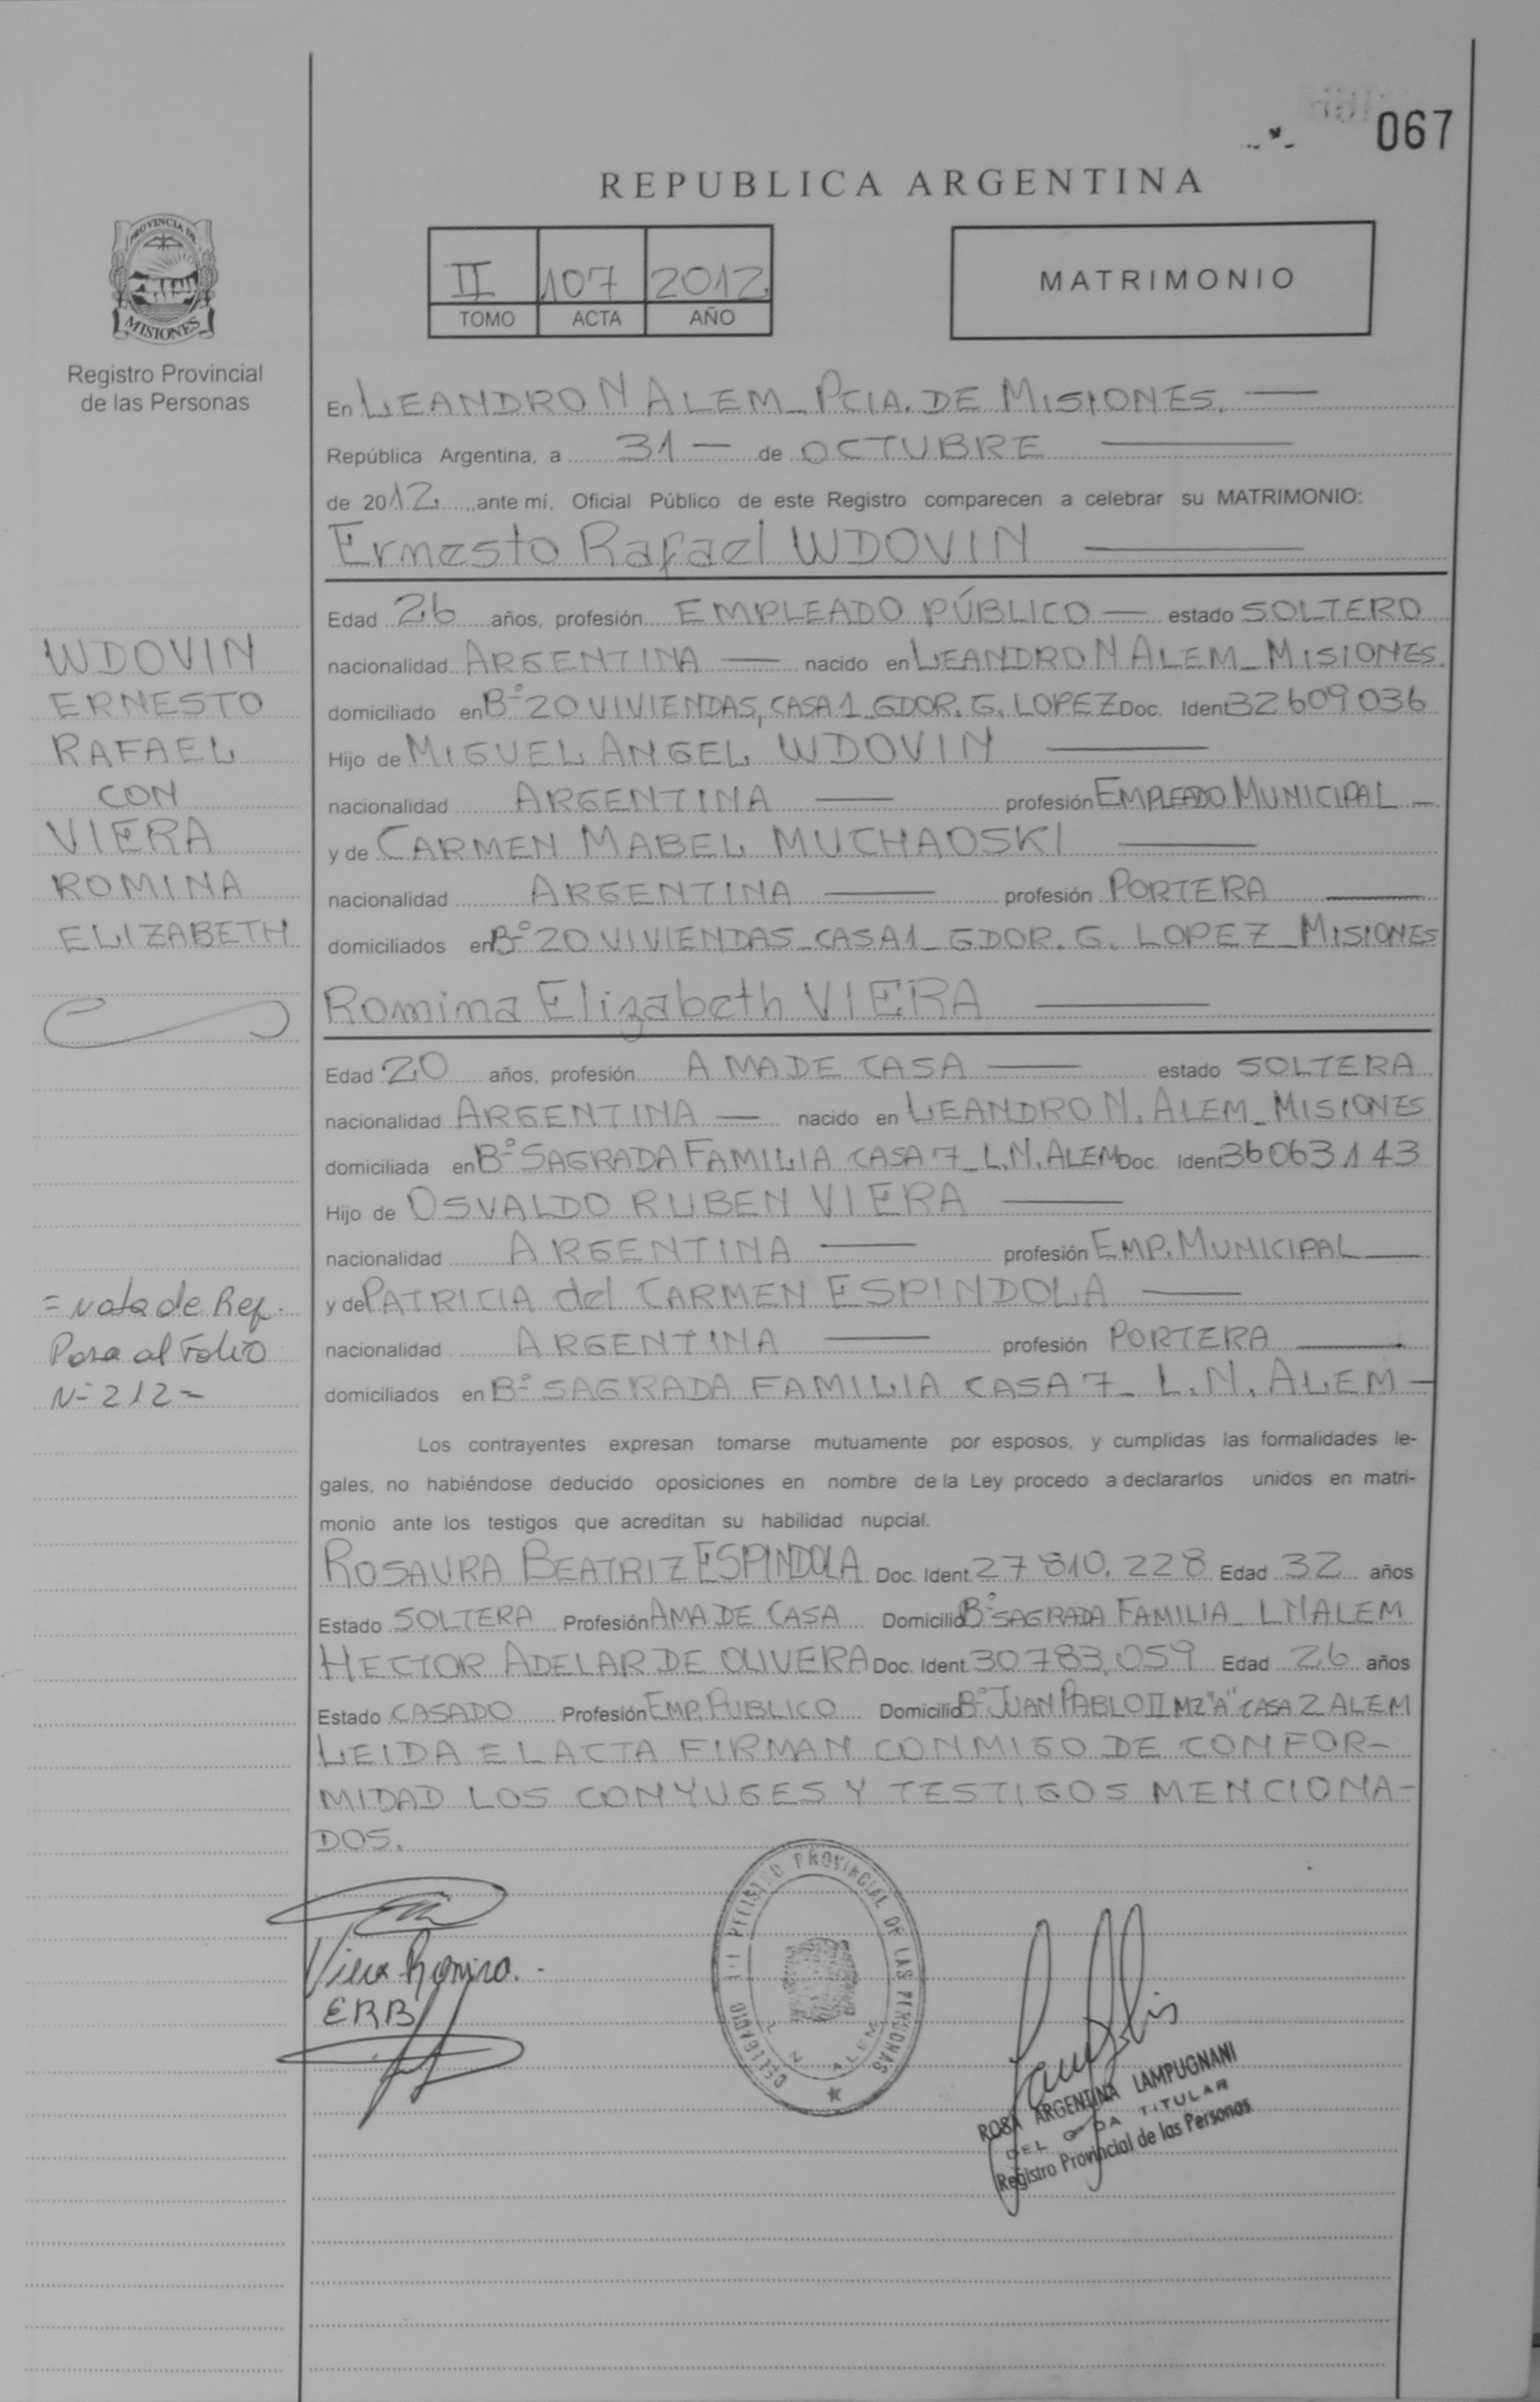 067
REPUBLICA ARGENTINA
PROVINCIA DE
MISIONES
Registro Provincial
de las Personas
II 107 2012
TOMO ACTA AÑO
MATRIMONIO
En LEANDRO N ALEM_PCIA. DE MISIONES. —
República Argentina, a 31 — de OCTUBRE —
de 2012 ante mí, Oficial Público de este Registro comparecen a celebrar su MATRIMONIO:
Ernesto Rafael WDOVIN —
Edad 26 años, profesión EMPLEADO PÚBLICO — estado SOLTERO
nacionalidad ARGENTINA — nacido en LEANDRO N ALEM_MISIONES.
domiciliado en Bº 20 VIVIENDAS, CASA 1_GDOR. G. LOPEZ Doc. Ident 32609036
Hijo de MIGUEL ANGEL WDOVIN —
nacionalidad ARGENTINA — profesión EMPLEADO MUNICIPAL —
y de CARMEN MABEL MUCHAOSKI —
nacionalidad ARGENTINA — profesión PORTERA —
domiciliados en Bº 20 VIVIENDAS_CASA 1_GDOR. G. LOPEZ_MISIONES
Romina Elizabeth VIERA —
Edad 20 años, profesión AMA DE CASA — estado SOLTERA
nacionalidad ARGENTINA — nacido en LEANDRO N. ALEM_MISIONES
domiciliada en Bº SAGRADA FAMILIA CASA 7_L.N. ALEM Doc. Ident 36063143
Hijo de OSVALDO RUBEN VIERA —
nacionalidad ARGENTINA — profesión EMP. MUNICIPAL —
y de PATRICIA del CARMEN ESPINDOLA —
nacionalidad ARGENTINA — profesión PORTERA —
domiciliados en Bº SAGRADA FAMILIA CASA 7_L.N. ALEM —
Los contrayentes expresan tomarse mutuamente por esposos, y cumplidas las formalidades le-
gales, no habiéndose deducido oposiciones en nombre de la Ley procedo a declararlos unidos en matri-
monio ante los testigos que acreditan su habilidad nupcial.
ROSAURA BEATRIZ ESPINDOLA Doc. Ident. 27810.228 Edad 32 años
Estado SOLTERA Profesión AMA DE CASA Domicilio Bº SAGRADA FAMILIA_LNALEM
HECTOR ADELAR DE OLIVERA Doc. Ident. 30783.059 Edad 26 años
Estado CASADO Profesión EMP. PUBLICO Domicilio Bº JUAN PABLO II MZ "A" CASA 2 ALEM
LEIDA EL ACTA FIRMAN CONMIGO DE CONFOR-
MIDAD LOS CONYUGES Y TESTIGOS MENCIONA-
DOS.
WDOVIN
ERNESTO
RAFAEL
CON
VIERA
ROMINA
ELIZABETH
= Nota de Ref.
Pasa al Folio
Nº 212 =
Viera Romina.
ERB
REGISTRO PROVINCIAL DE LAS PERSONAS
L. N. ALEM
ROSA ARGENTINA LAMPUGNANI
TITULAR
Registro Provincial de las Personas